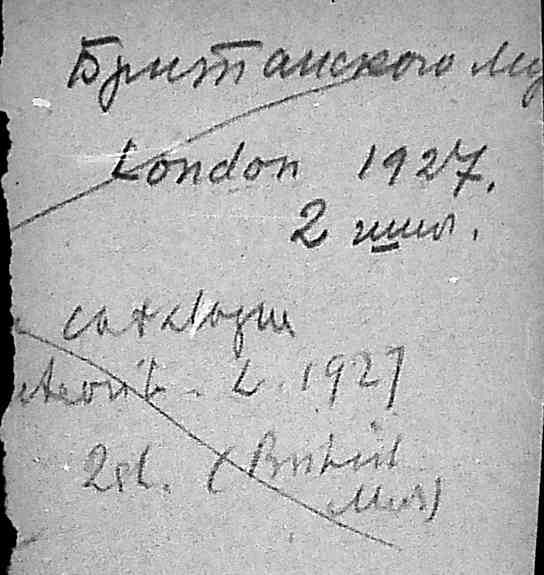 Британского Му
London 1927.
2 шил.
catalogue
eteorit. L. 1927
2sh. (British
Mus)